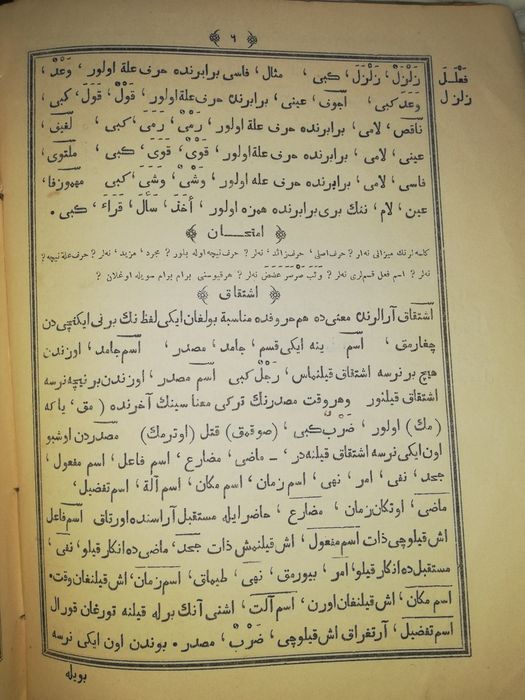 ﴾ ٦ ﴿
فَعْلَلَ
زلزل
زَلْزَلَ، زَلْزَلَ، كبى، مثال، فاسى برابرنده حرف علة اولور، وَعْدٌ،
وَعَدَ كبى، أجوف، عينى، برابرنده حرف علة اولور، قَوْلٌ، قَوَلَ، كبى،
ناقص، لامى، برابرنده حرف علة اولور، رَمْىٌ، رَمَىَ، كبى، لفيف،
عينى، لامى، برابرنده حرف علة اولور، قَوْىٌ، قَوَىَ، كبى، ملتوى،
فاسى، لامى، برابرنده حرف علة اولور، وَشْىٌ، وَشَىَ، كبى، مهموز فا،
عين، لام، ننك برى برابرنده همزه اولور، أَخَذَ، سَأَلَ، قَرَأَ، كبى.
﴾ امتحان ﴿
كلمه لرنك ميزانى نه لر؟ حرف اصلى، حرف زائد، نه لر؟ حرف نيچه اوله بلور؟ مجرد، مزيد، نه لر؟ حرف علة نيچه؟
نه لر؟ اسم فعل قسملرى نه لر؟ نه لر؟ هر قيوسنى برام برام سويله اوغلان؟
﴾ اشتقاق ﴿
اشتقاق آرالرنده معنى ده هم حروفده مناسبة بولغان ايكى لفظ نك برنى ايكنچى دن
چغارمق، اسم ينه ايكى قسم، جامد، مصدر، اسم جامد، اوزندن
هيچ بر نرسه اشتقاق قيلنماس، رَجُلٌ كبى اسم مصدر، اوزندن بر نيچه نرسه
اشتقاق قيلنور وهر وقت مصدرنك تركى معنا سينك آخرنده (مق، يا كه
(مك) اولور، ضَرْبٌ كبى، (صوقمق) قتل (اوترمك) مصدردن اوشبو
اون ايكى نرسه اشتقاق قيلنه در، ـ ماضى، مضارع، اسم فاعل، اسم مفعول،
جحد، نفى، امر، نهى، اسم زمان، اسم مكان، اسم آلة، اسم تفضيل،
ماضى، اوتكان زمان، مضارع، حاضر ايله مستقبل آراسنده اورتاق اسم فاعل
اش قيلوچى ذات اسم مفعول، اش قيلنمش ذات جحد، ماضى ده انكار قيلو، نفى،
مستقبل ده انكار قيلو، امر، بيورمق، نهى، طيماق، اسم زمان، اش قيلنغان وقت.
اسم مكان، اش قيلنغان اورن، اسم آلت، اشنى آنك برله قيلنه تورغان قورال
اسم تفضيل، آرتغراق اش قيلوچى، ضَرْبٌ، مصدر. بوندن اون ايكى نرسه
بويله